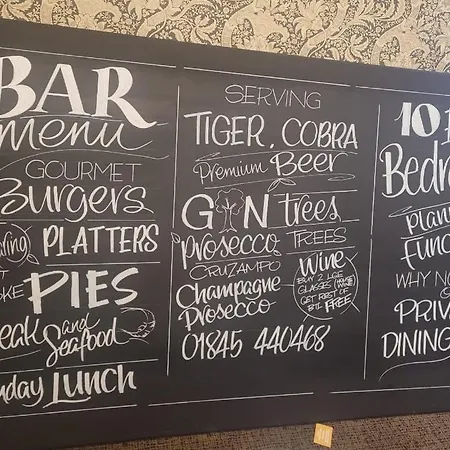 BAR
menu
GOURMET
Burgers
PLATTERS
PIES
and
Seafood
LUNCH
SERVING
TIGER, COBRA
Premium Beer
GIN trees
Prosecco TREES
CRUZAMPO
Champagne
Prosecco
Wine
BUY 2 LGE
GLASSES HOUSE WINE
GET REST OF
BTL FREE
01845 440468
10
WHY NO
DINING